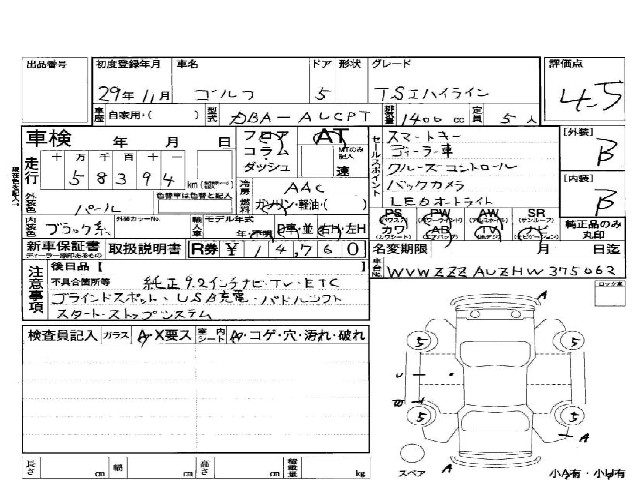 出品番号 初度登録年月 車名 ドア 形状 グレード 評価点
29年11月 ゴルフ 5 TSIハイライン 4.5
車歴 自家用・( ) 型式 DBA-AUCPT 排気量 1400 cc 定員 5 人
車検 年 月 日 フロア AT セールスポイント スマートキー [外装]
コラム ダッシュ MTのみ記入 速 ディーラー車 B
走行 十 万 千 百 十 一
58394 km 冷房 AAC クルーズコントロール
色替車は色替と記入 燃料 ガソリン・軽油・( ) バックカメラ [内装]
外装色 パール LEDオートライト B
内装色 ブラック系 外装カラーNo. 輸入車 モデル年式 年・不明 D車・並 右H・左H
PS PW AW SR
カワ AB TV ナビ 純正品のみ丸印
新車保証書 取扱説明書 R券 ¥ 14,760 名変期限 月 日迄
ディーラー捺印あるもの
注意事項 後日品 [ ] 車台No. WVWZZZAUZHW375062
不具合箇所等 純正9.2インチナビ・TV・ETC ロック車
ブラインドスポット・USB充電・パドルシフト
スタート・ストップシステム
検査員記入 ガラス A・X要ス 室内シート A・コゲ・穴・汚れ・破れ
A
5 5
U
W
5 5
A
スペア A
長さ cm 幅 cm 高さ cm 積載量 kg 小A有・小U有